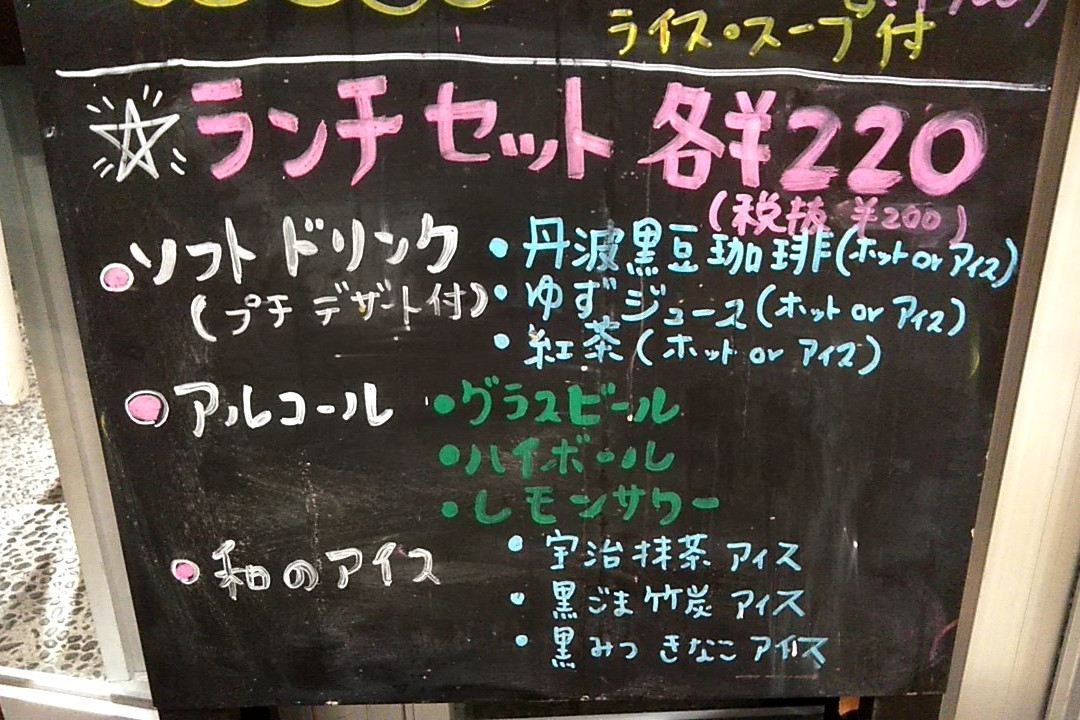 ライス・スープ付
☆ランチセット 各¥220
(税抜 ¥200)
●ソフトドリンク
(プチデザート付)
・丹波黒豆珈琲(ホット or アイス)
・ゆずジュース(ホット or アイス)
・紅茶(ホット or アイス)
●アルコール
・グラスビール
・ハイボール
・レモンサワー
●和のアイス
・宇治抹茶アイス
・黒ごま竹炭アイス
・黒みつきなこアイス